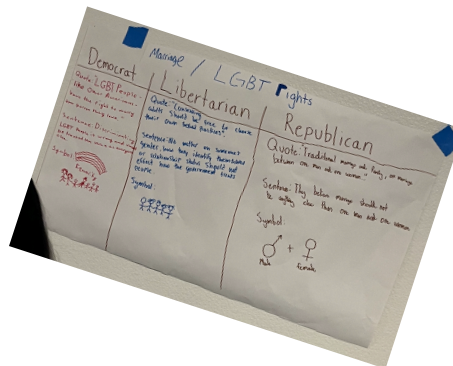 Marriage / LGBT Rights
Democrat
Quote: "LGBT People,
like other Americans,
have the right to marry
Sentence:
Symbol:
Libertarian
Quote: "Consenting
adults should be free to choose
their own sexual practices".
Sentence: No matter on someone's
gender, how they identify themselves
or relationships status should not
effect how the government treats
people.
Symbol:
Republican
Quote: "Traditional marriage and family,
between one man and one woman"
Sentence: They believe marriage should not
be anything else than one man and one woman
Symbol:
+
Male
Female